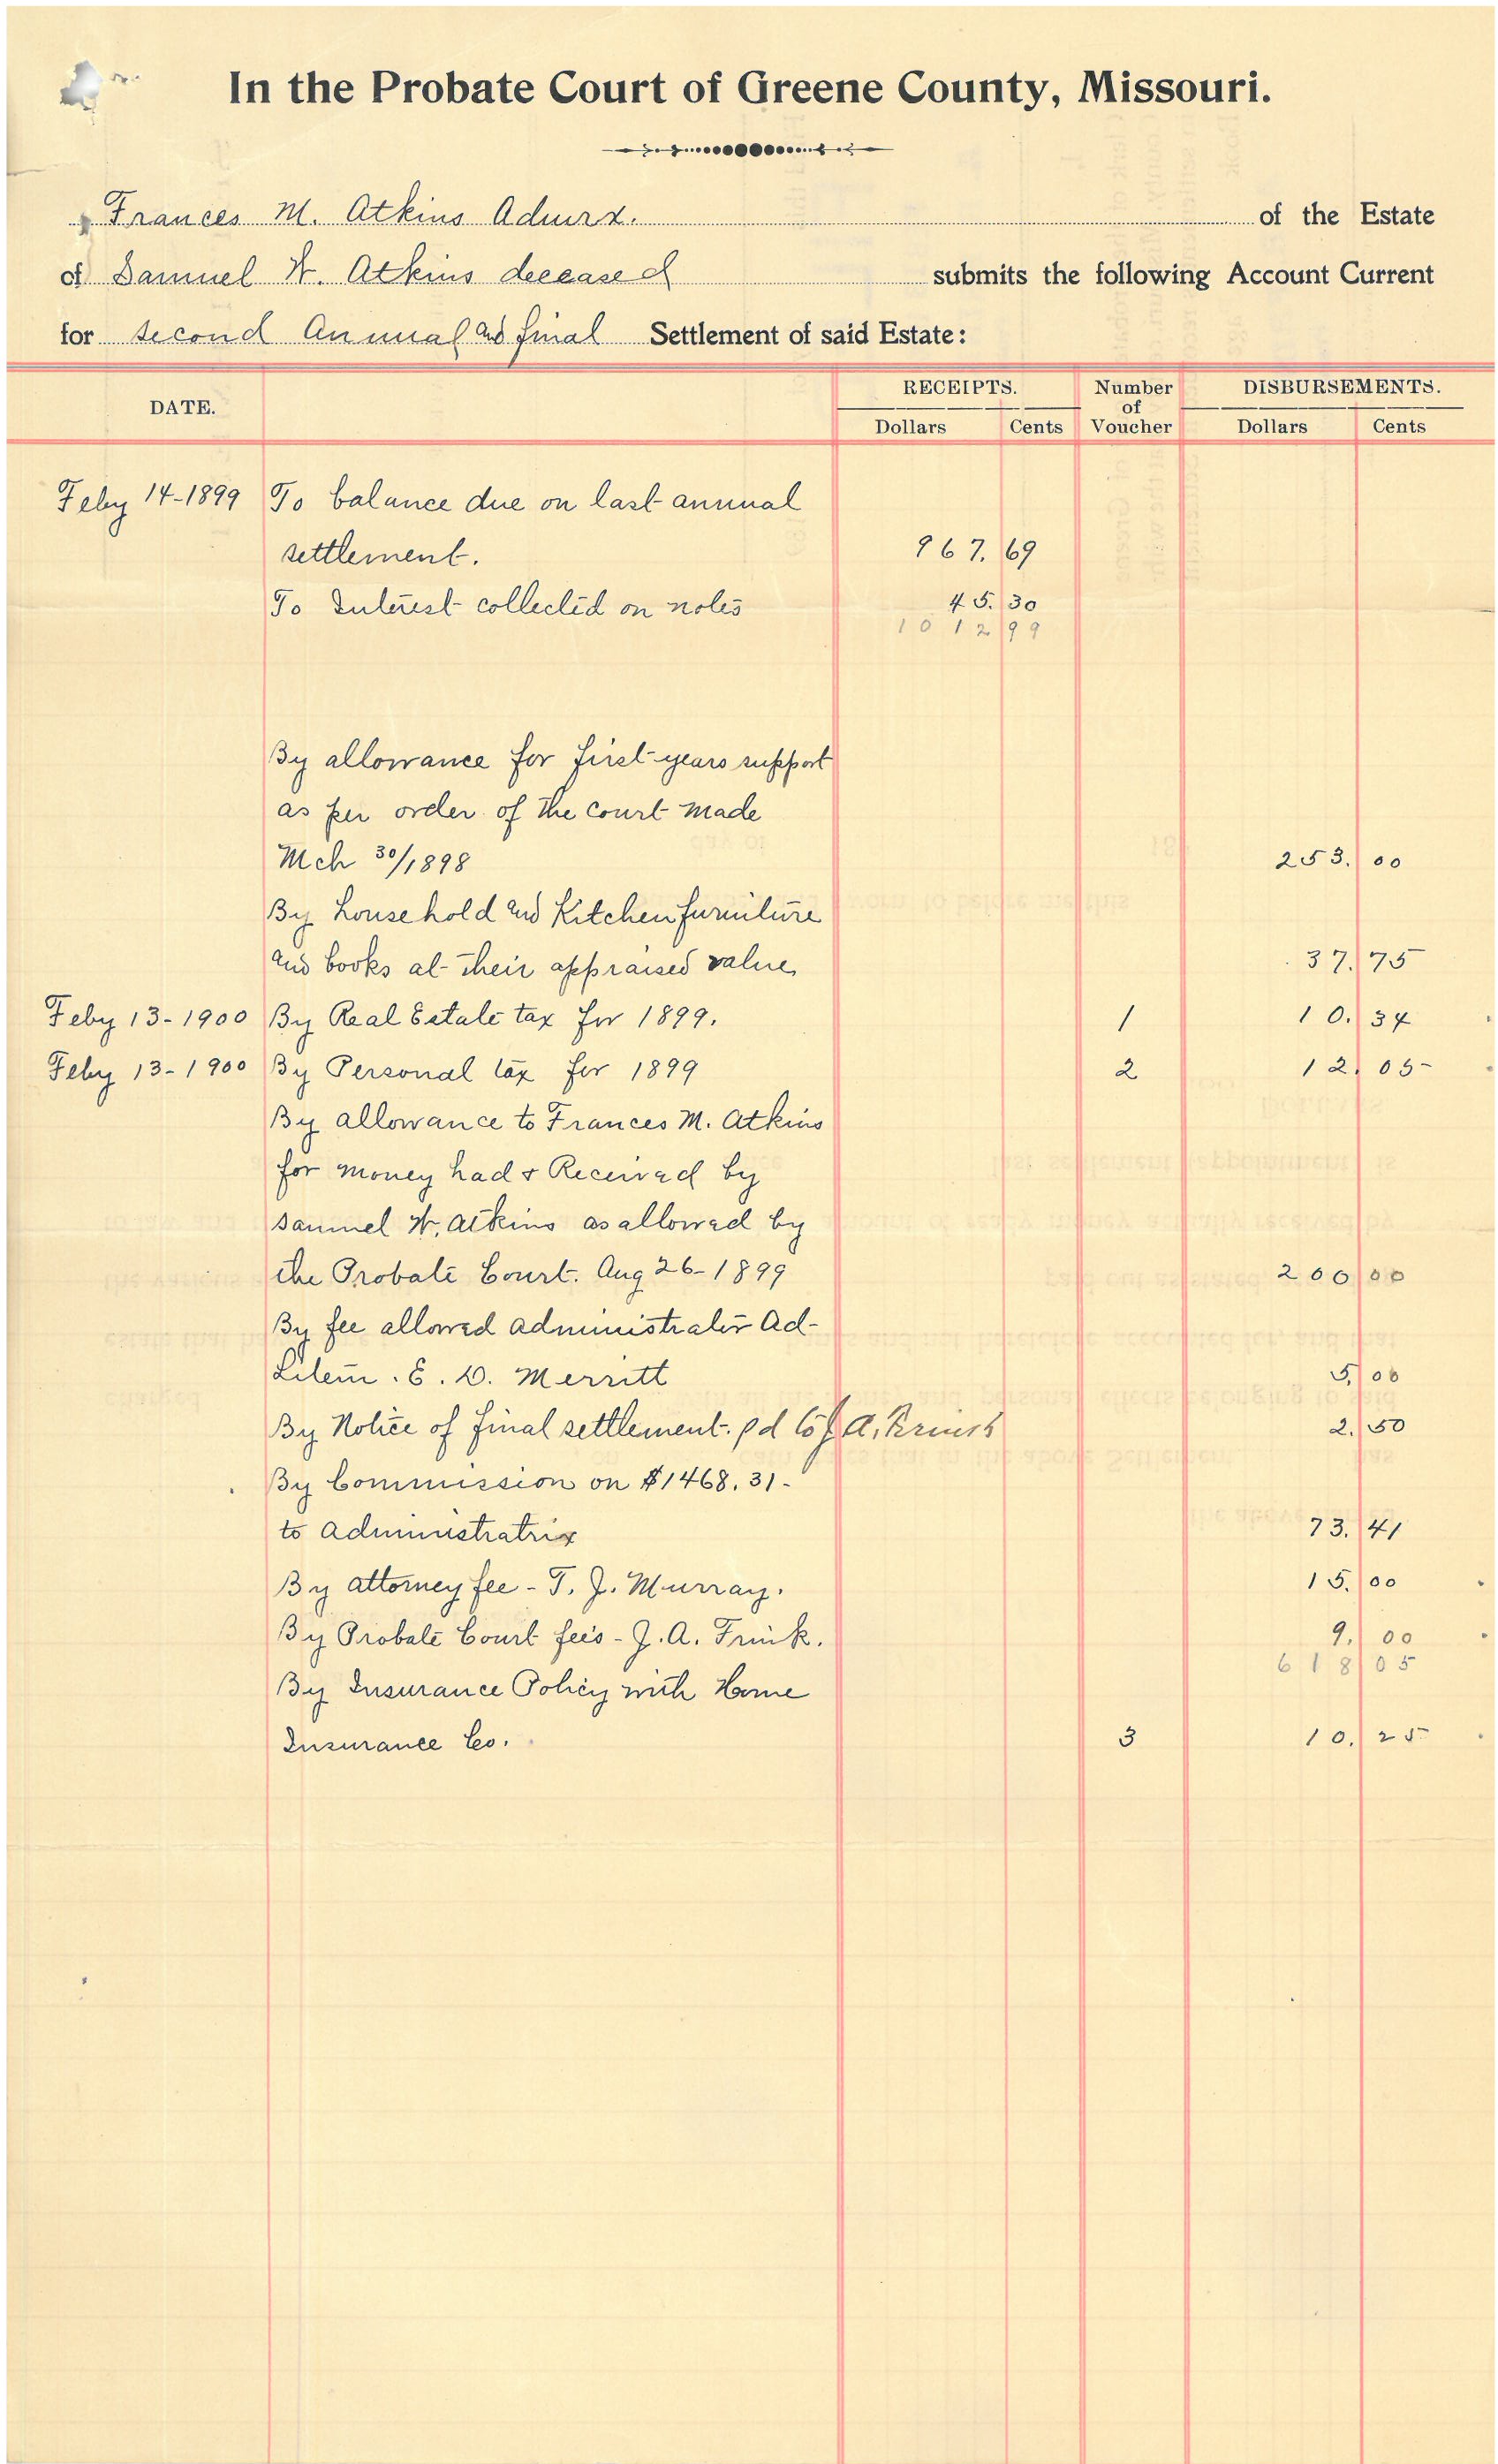 In the Probate Court of Greene County, Missouri.
Frances M. Atkins Admrx. of the Estate
of Samuel W. Atkins deceased submits the following Account Current
for second Annual and final Settlement of said Estate:
DATE. RECEIPTS. Number of Voucher DISBURSEMENTS.
Dollars Cents Dollars Cents
Feby 14-1899 To balance due on last annual
settlement. 967. 69
To Interest collected on notes 45. 30
1012 99
By allowance for first years support
as per order of the court made
Mch 30/1898 253. 00
By household and Kitchen furniture
and books at their appraised value, 37. 75
Feby 13-1900 By Real Estate tax for 1899. 1 10. 34
Feby 13-1900 By Personal tax for 1899 2 12. 05
By allowance to Frances M. Atkins
for money had & Received by
Samuel W. Atkins as allowed by
the Probate Court. Aug 26-1899 200 00
By fee allowed administrator Ad-
Litem. E. D. Merritt 5. 00
By Notice of final settlement. pd to J A. 2. 50
By Commission on $1468.31-
to administratrix 73. 41
By attorney fee - T. J. Murray. 15. 00
By Probate Court fees - J. A. Frink. 9. 00
618 05
By Insurance Policy with Home
Insurance Co. 3 10. 25